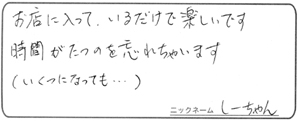 お店に入って、いるだけで楽しいです
時間がたつのを忘れちゃいます
(いくつになっても…)
ニックネーム しーちゃん